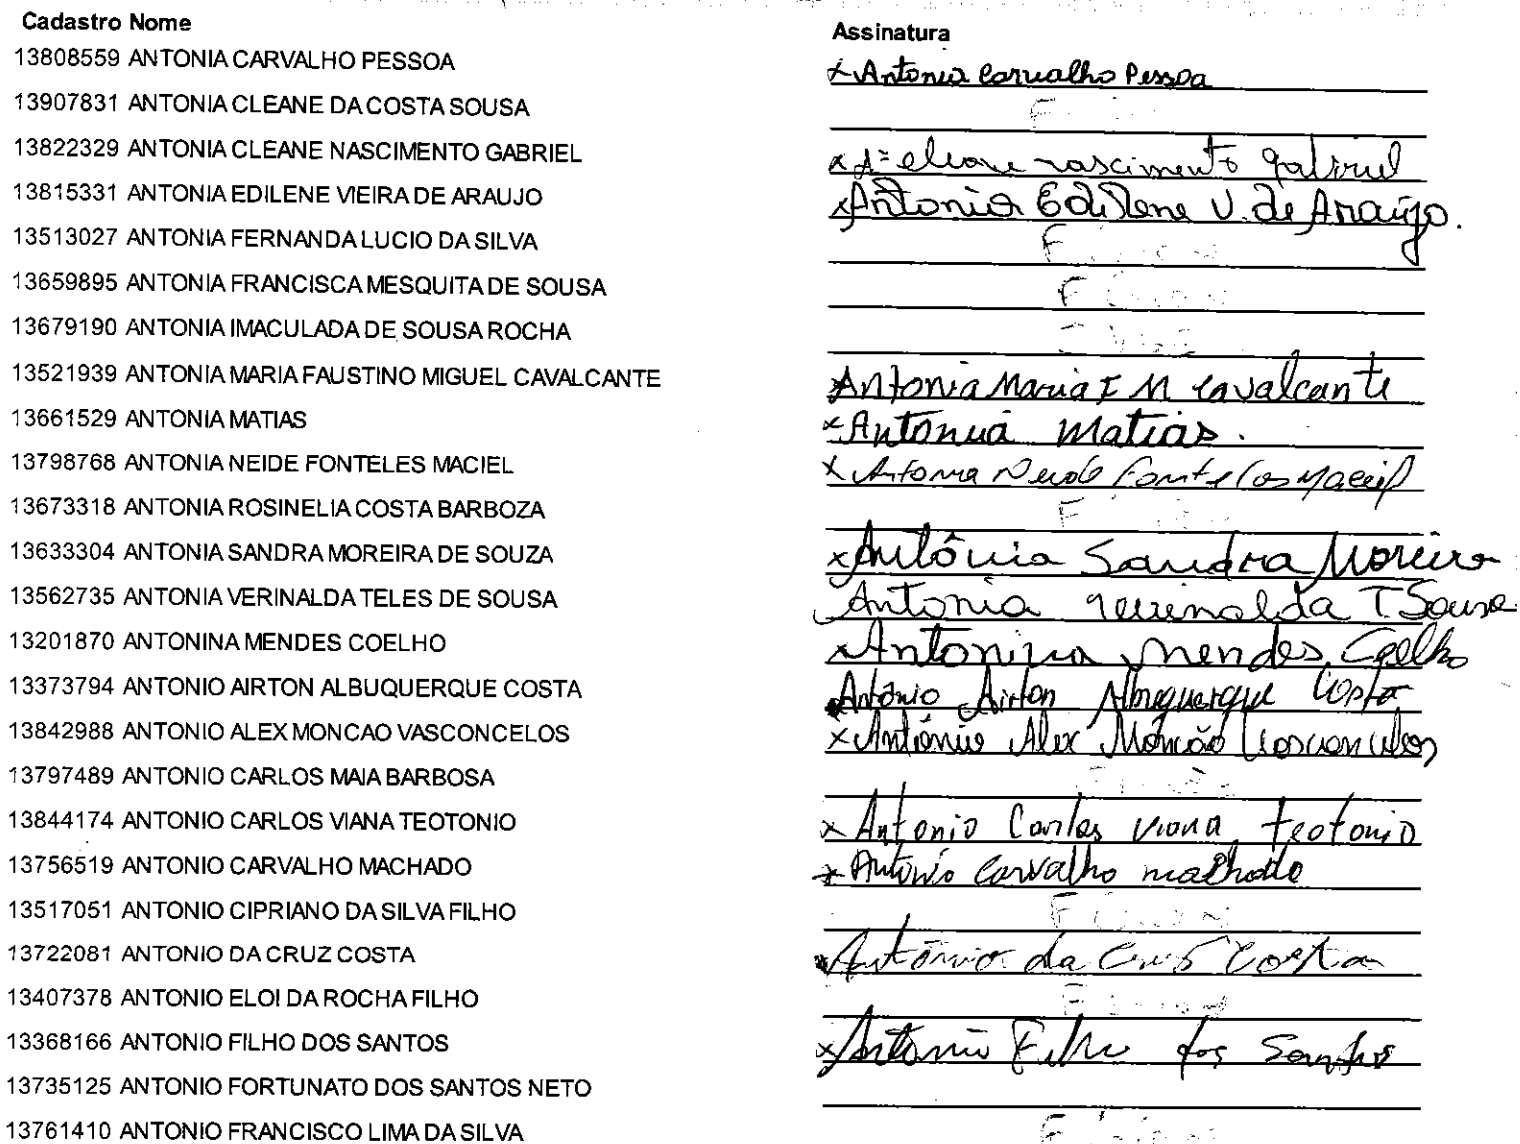 Cadastro Nome Assinatura
13808559 ANTONIA CARVALHO PESSOA x Antonia Carvalho Pessoa
13907831 ANTONIA CLEANE DA COSTA SOUSA
13822329 ANTONIA CLEANE NASCIMENTO GABRIEL x Aª cleane nascimento gabriel
13815331 ANTONIA EDILENE VIEIRA DE ARAUJO x Antonia Edilene V. de Araújo.
13513027 ANTONIA FERNANDA LUCIO DA SILVA
13659895 ANTONIA FRANCISCA MESQUITA DE SOUSA
13679190 ANTONIA IMACULADA DE SOUSA ROCHA
13521939 ANTONIA MARIA FAUSTINO MIGUEL CAVALCANTE x Antonia Maria F M Cavalcante
13661529 ANTONIA MATIAS x Antonia Matias.
13798768 ANTONIA NEIDE FONTELES MACIEL x Antonia Neide Fonteles Maciel
13673318 ANTONIA ROSINELIA COSTA BARBOZA
13633304 ANTONIA SANDRA MOREIRA DE SOUZA x Antônia Sandra Moreira
13562735 ANTONIA VERINALDA TELES DE SOUSA Antonia Verinalda T Sousa
13201870 ANTONINA MENDES COELHO x Antonina Mendes Coelho
13373794 ANTONIO AIRTON ALBUQUERQUE COSTA Antônio Airton Albuquerque Costa
13842988 ANTONIO ALEX MONCAO VASCONCELOS x Antônio Alex Monção Vasconcelos
13797489 ANTONIO CARLOS MAIA BARBOSA
13844174 ANTONIO CARLOS VIANA TEOTONIO x Antonio Carlos Viana Teotonio
13756519 ANTONIO CARVALHO MACHADO x Antonio Carvalho machado
13517051 ANTONIO CIPRIANO DA SILVA FILHO
13722081 ANTONIO DA CRUZ COSTA Antônio da Cruz Costa
13407378 ANTONIO ELOI DA ROCHA FILHO
13368166 ANTONIO FILHO DOS SANTOS x Antonio Filho dos Santos
13735125 ANTONIO FORTUNATO DOS SANTOS NETO
13761410 ANTONIO FRANCISCO LIMA DA SILVA